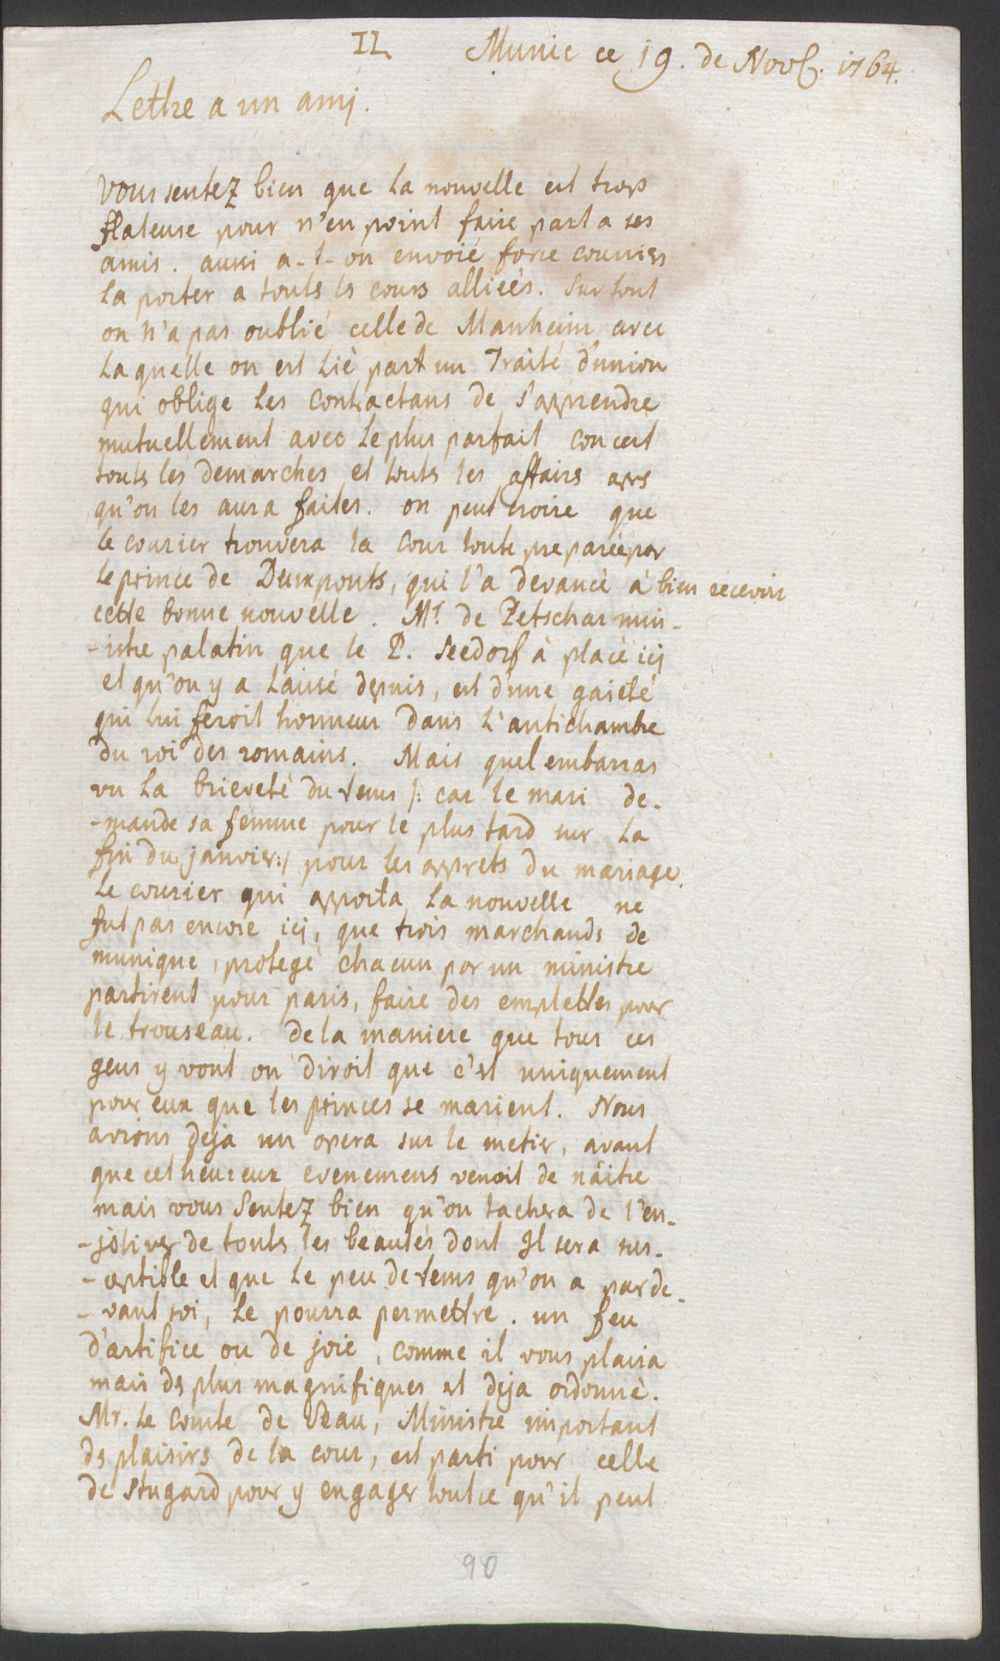 II.
Munic ce 19. de Novb. 1764.
Lettre a un amj.
vous sentez bien que la nouvelle est trops
flateuse pour n'en point faire part a ses
amis. aussi a-t-on envoié force couriers
la porter a touts ls cours alliées. Sur tout
on n'a pas oublié celle de Manheim avec
laquelle on est liè part un Traité d'union
qui oblige les contractans de s'apprendre
mutuellement avec le plus parfait concert
touts les demarches et touts les affairs aprs
qu'on les aura faites. on peut croire que
le courier trouvera la cour toute preparée par
le prince de Deuxponts, qui l'a devancè à bien recevoir
cette bonne nouvelle. Mr. de Zetschar min-
-istre palatin que le P. Seedorf à placè icj
et qu'on y a laissé depuis, est d'une gaieté
qui lui feroit honneur dans l'antichambre
du roi des romains. Mais quel embarras
vu la brieveté du tems /: car le mari de-
-mande sa femme pour le plus tard sur la
fin du janvier :/ pour les apprets du mariage.
le courier qui apporta la nouvelle ne
fut pas encore icj, que trois marchands de
munique, protegé chacun par un ministre
partirent pour paris, faire des emplettes pour
le trouseau. de la maniere que tous ces
gens y vont on diroit que c'est uniquement
pour eux que les princes se marient. Nous
avions deja un opera sur le metier, avant
que cet heureux evenemens venoit de näitre
mais vous sentez bien qu'on tachera de l'en-
-joliver de touts les beautés dont Jl sera sus-
-eptible et que le peu de tems qu'on a par de-
-vant soi, le pourra permettre. un feu
d'artifice ou de joie, comme il vous plaira
mais ds plus magnifiques est deja ordonnè.
Mr. le Comte de Seau, Ministre important
ds plaisirs de la cour, est parti pour celle
de Stugard pour y engager tout ce qu'il peut
90